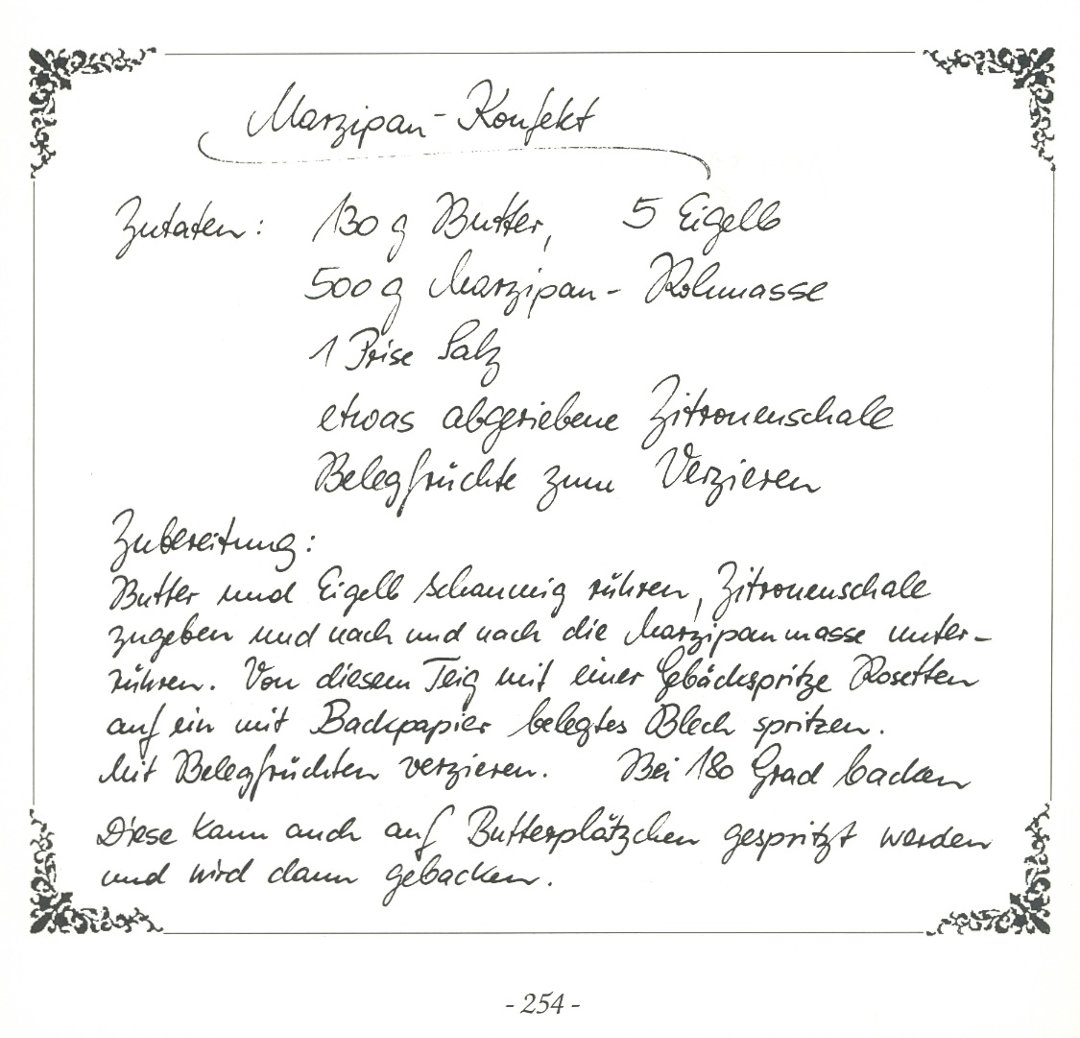 Marzipan-Konfekt
Zutaten: 130 g Butter, 5 Eigelb
500 g Marzipan-Rohmasse
1 Prise Salz
etwas abgeriebene Zitronenschale
Belegfrüchte zum Verzieren
Zubereitung:
Butter und Eigelb schaumig rühren, Zitronenschale
zugeben und nach und nach die Marzipanmasse unter-
rühren. Von diesem Teig mit einer Gebäckspritze Rosetten
auf ein mit Backpapier belegtes Blech spritzen.
Mit Belegfrüchten verzieren. Bei 180 Grad backen
Diese kann auch auf Butterplätzchen gespritzt werden
und wird dann gebacken.
- 254 -